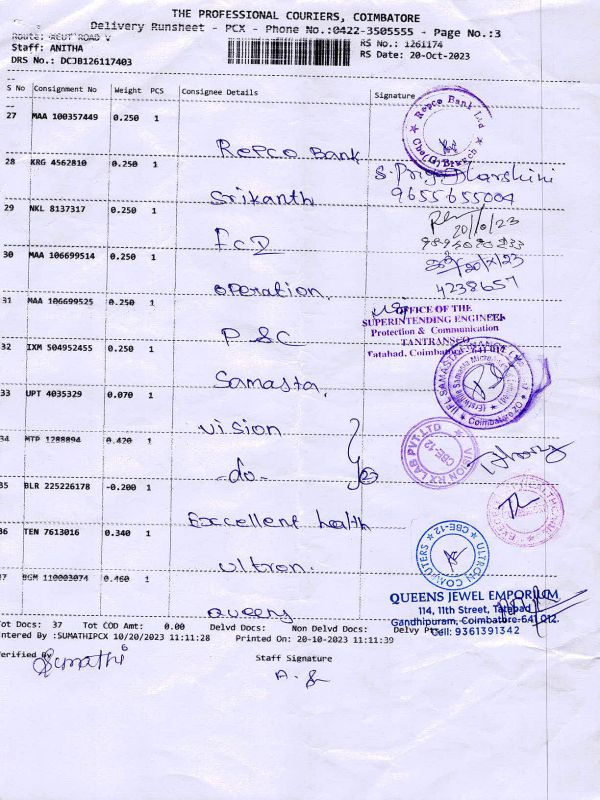 THE PROFESSIONAL COURIERS, COIMBATORE
Delivery Runsheet - PCX - Phone No.:0422-3505555 - Page No.:3
Route: ROAD V
Staff: ANITHA
RS No.: 1261174
DRS No.: DCJB126117403
RS Date: 20-Oct-2023
S No Consignment No Weight PCS Consignee Details Signature
27 MAA 100357449 0.250 1 Repco Bank
Repco Bank Ltd
28 KRG 4562810 0.250 1 Srikanth
S. Priya Dharshini
9655655004
29 NKL 8137317 0.250 1
20/10/23
30 MAA 106699514 0.250 1 operation.
20/x/23
4238657
31 MAA 106699525 0.250 1 PSC
OFFICE OF THE
SUPERINTENDING ENGINEER
Protection & Communication
TANTRANSCO
Tatabad, Coimbatore - 641 012
32 IXM 504952455 0.250 1 Samasta.
IIFL SAMASTA FINANCE
Coimbatore ZO
33 UPT 4035329 0.070 1 vision
34 MTP 1288894 0.420 1 -do-
VISION RX LAB PVT.LTD
CBE-12
35 BLR 225226178 -0.200 1 Excellent health
36 TEN 7613016 0.340 1 ultron.
ULTRON COMPUTERS
CBE-12
37 BGM 110003074 0.460 1 Queens
QUEENS JEWEL EMPORIUM
114, 11th Street, Tatabad
Gandhipuram, Coimbatore-641 012.
Cell: 9361391342
Tot Docs: 37 Tot COD Amt: 0.00 Delvd Docs: Non Delvd Docs: Delvy
Entered By :SUMATHIPCX 10/20/2023 11:11:28 Printed On: 20-10-2023 11:11:39
Verified By Staff Signature
Sumathi